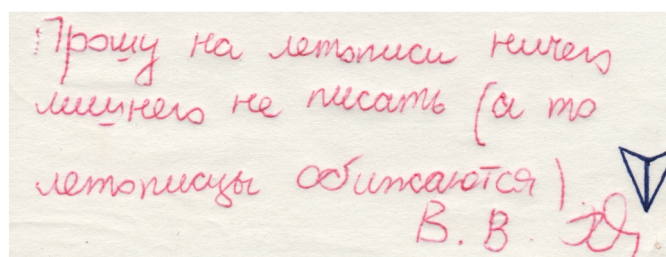 Прошу на летописи ничего
лишнего не писать (а то
летописцы обижаются)
В. В.